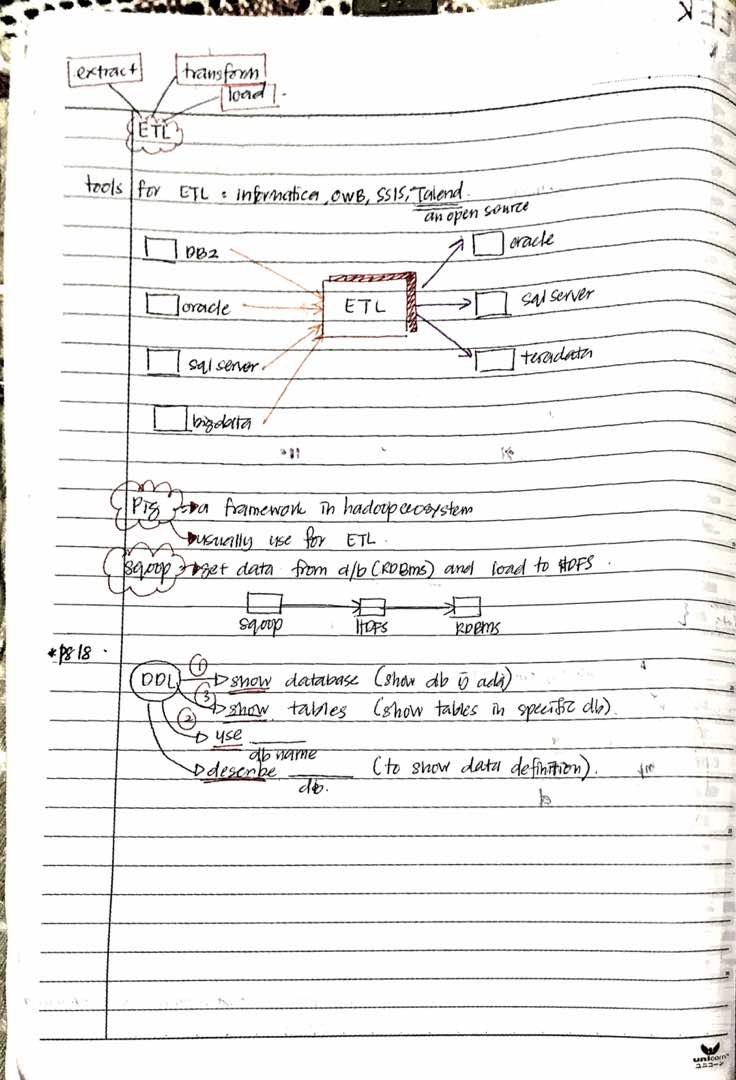 extract
transform
load
ETL
tools for ETL : informatica, OWB, SSIS, Talend
an open source
DB2
oracle
sql server
bigdata
ETL
oracle
sql server
teradata
Pig → a framework in hadoop ecosystem
→ usually use for ETL.
sqoop → get data from d/b (RDBms) and load to HDFS.
sqoop HDFS RDBms
*pg 18.
DDL
① → show database (show db yg ada)
③ → show tables (show tables in specific db).
② → use ____
db name
→ describe ____ (to show data definition).
db.
unicorn
ユニコーン